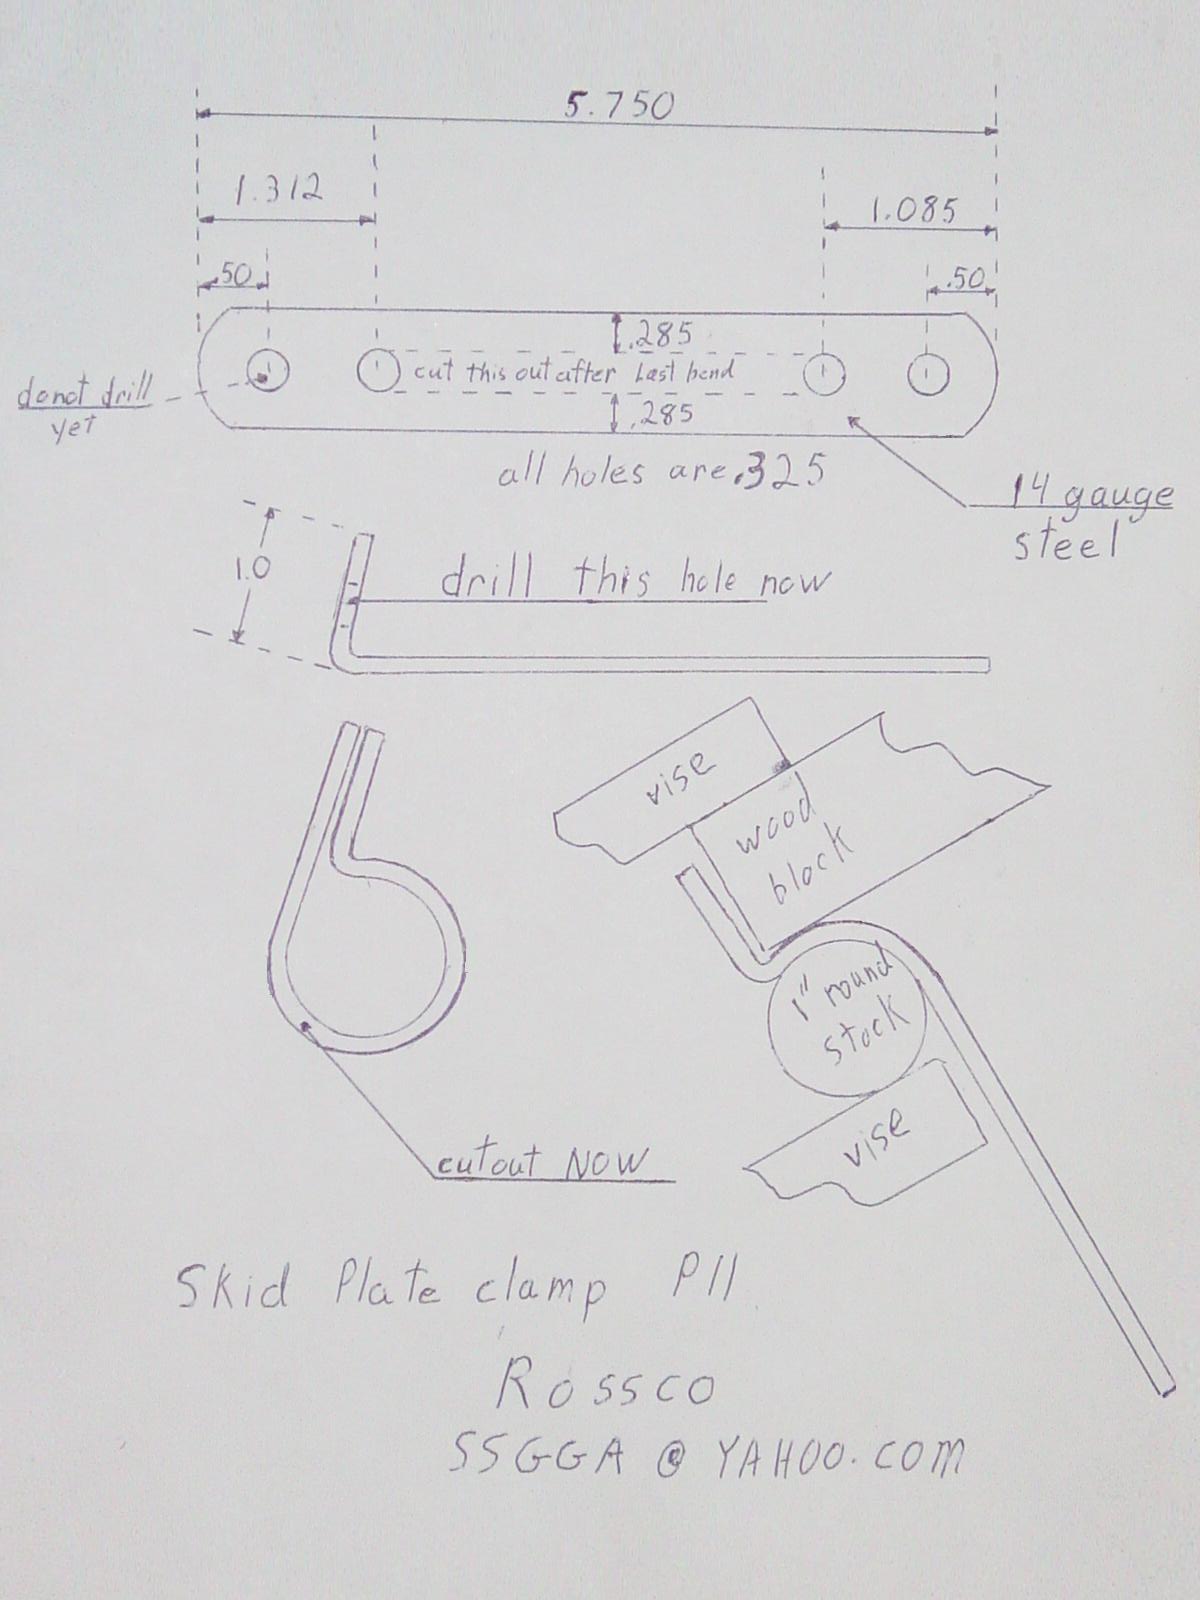 5.750
1.312
1.085
.50
.50
.285
cut this out after last bend
do not drill
yet
.285
all holes are .325
14 gauge
steel
1.0
drill this hole now
vise
wood
block
1" round
stock
vise
cutout NOW
Skid Plate clamp P11
Rossco
SSGGA @ YAHOO.COM